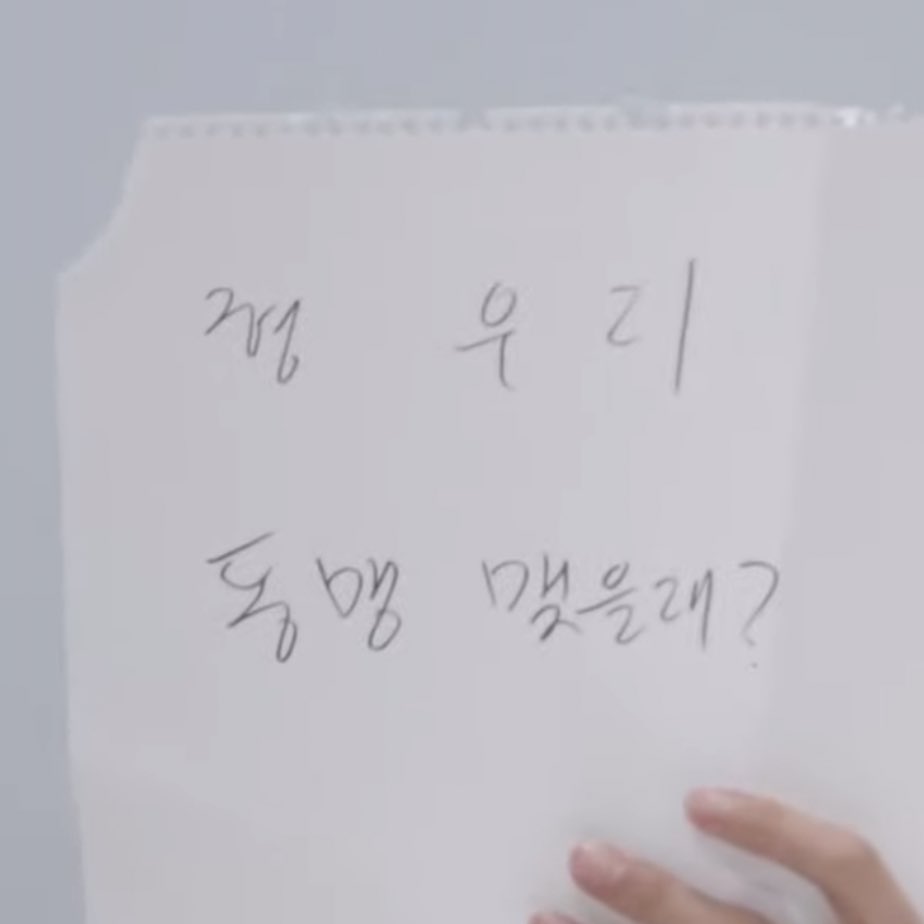 형 우리
동맹 맺을래?